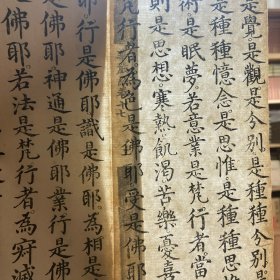 是覺是觀是分別是種種
是種種憶念是思惟是種種思
術是眠夢若意業是梵行者當
則是思想寒熱飢渴苦樂憂喜
梵行者為耶受是佛耶
耶行是佛耶識是佛耶為相是
佛耶神通是佛耶業行是佛
佛耶若法是梵行者為寂滅